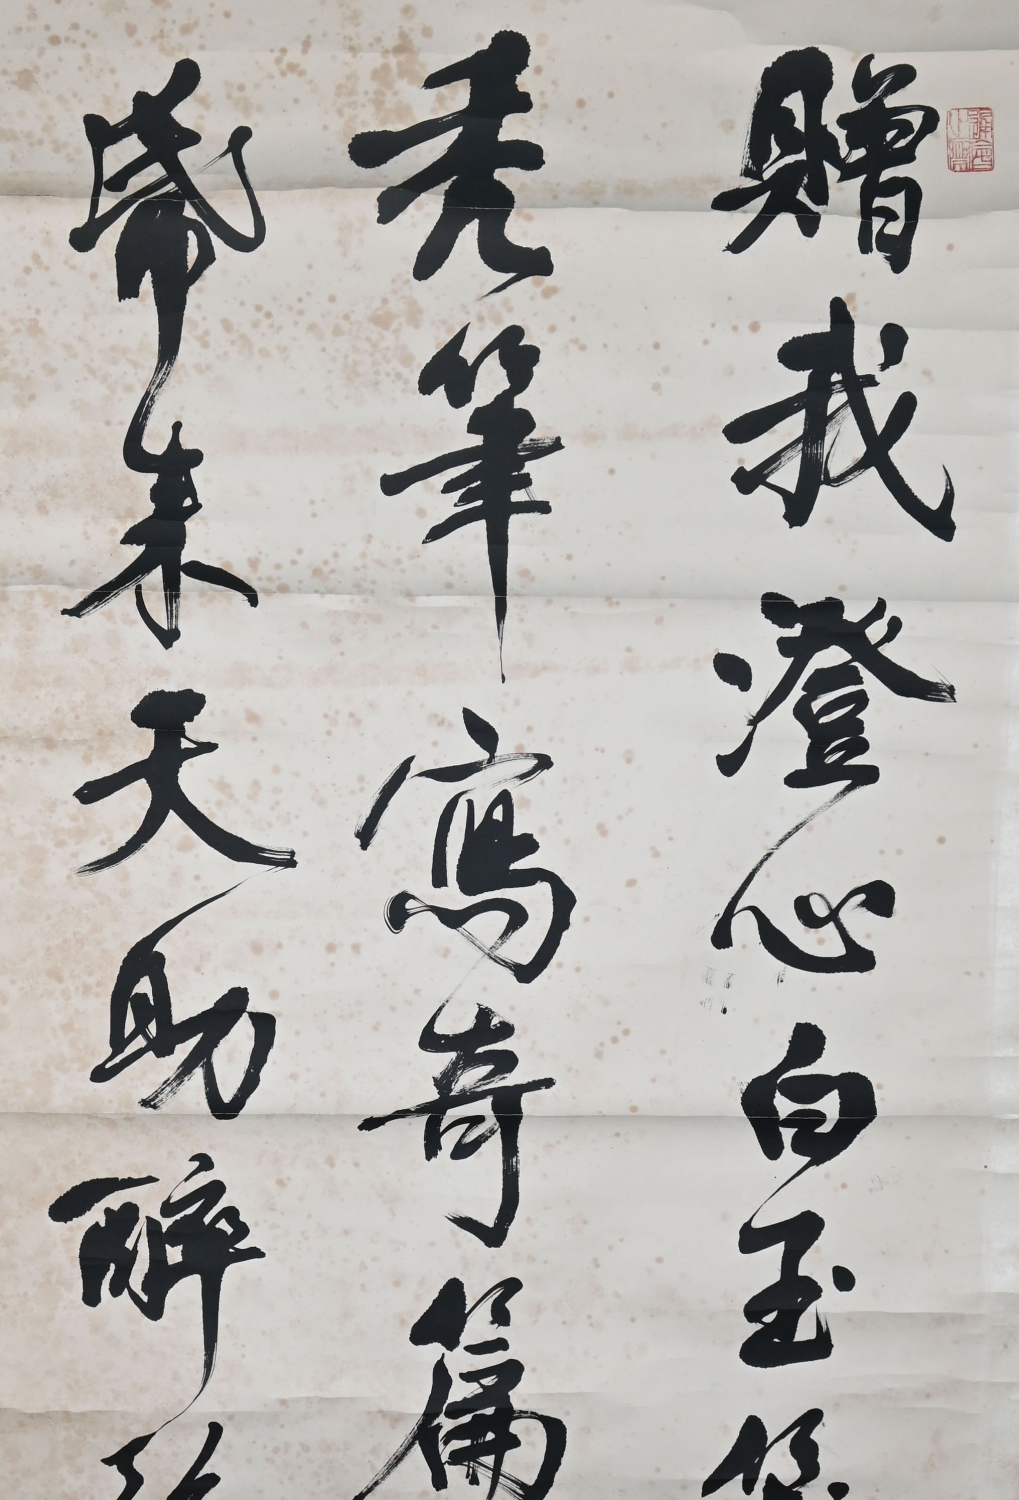 贈我澄心白玉
禿筆寫奇篇
帶來天助醉